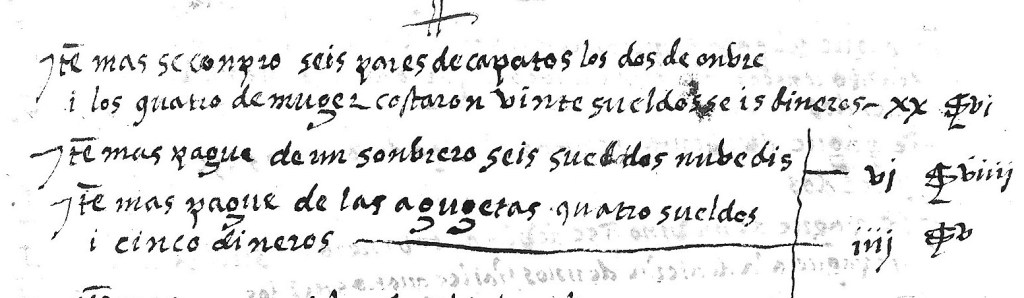 ytē mas se conpro seis pares de capatos los dos de onbre
i los quatro de muger costaron vinte sueldos seis dineros – xx s vi
ytē mas pague de un sonbrero seis sueldos nubedis — vj s viiij
ytē mas pague de las agugetas quatro sueldos
i cinco dineros — iiij s v